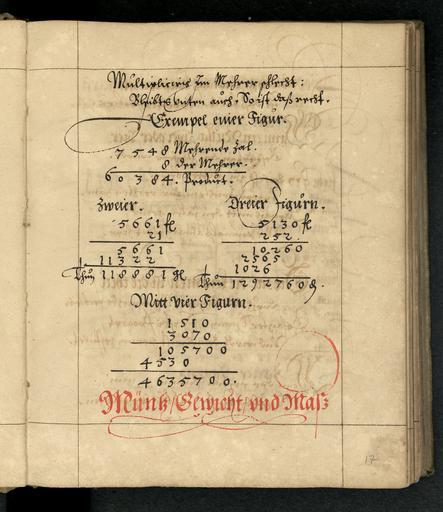 Multiplicirs im Mehrer schlecht:
Bleibts unten auch, So ist daß recht.
Exempel einer Figur.
7 5 4 8 Mehrende Zal.
8 der Mehrer.
6 0 3 8 4. Product.
Zweier.
5 6 6 1 fl
2 1
5 6 6 1
1 1 3 2 2
Thun 1 1 8 8 8 1 fl
Dreier Figurn.
5 1 3 0 fl
2 5 2.
1 0 2 6 0
2 5 6 5
1 0 2 6
Thun 1 2 9 2 7 6 0
Mitt vier Figurn.
1 5 1 0
3 0 7 0
1 0 5 7 0 0
4 5 3 0
4 6 3 5 7 0 0.
Müntz/Gewicht/vnd Maß
17